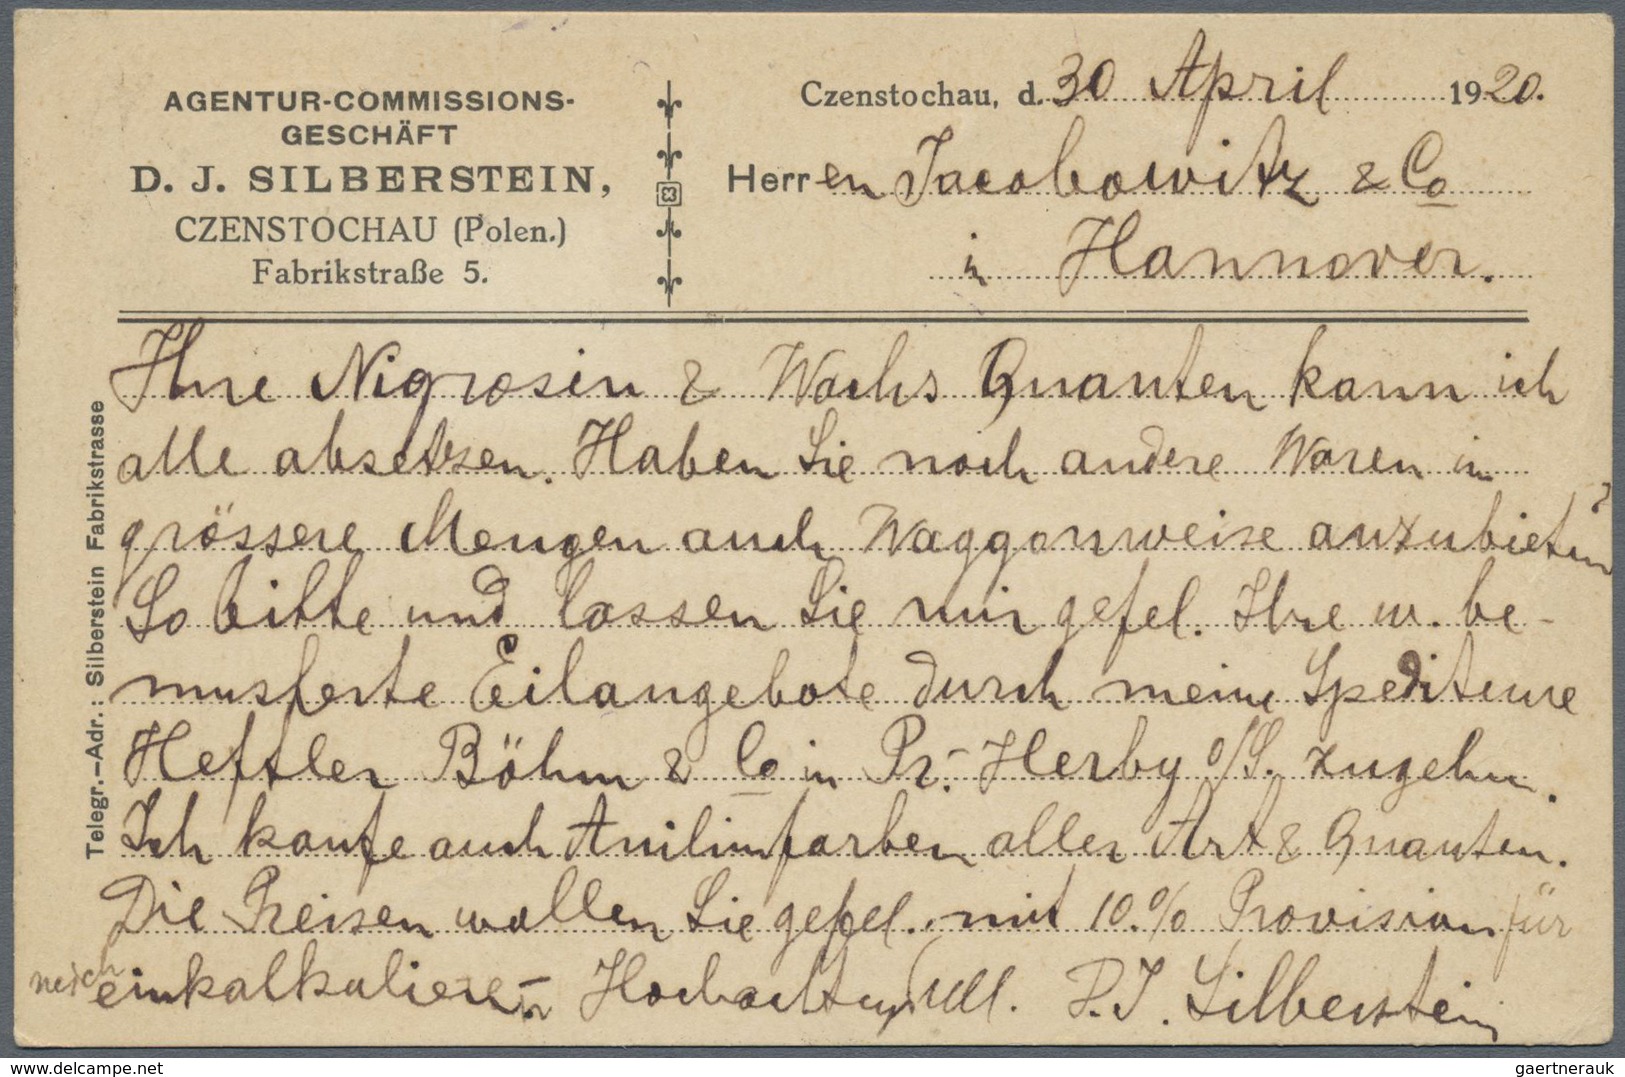 AGENTUR-COMMISSIONS-
GESCHÄFT
D. J. SILBERSTEIN,
CZENSTOCHAU (Polen.)
Fabrikstraße 5.
Czenstochau, d. 30 April 1920.
Herren Jacobowitz & Co
in Hannover.
Telegr.-Adr.: Silberstein Fabrikstrasse
Ihre Nigrosin & Wachs Quanten kann ich
alle absetzen. Haben Sie noch andere Waren in
grössere Mengen auch Waggonweise anzubieten?
So bitte und lassen Sie mir gefel. Ihre w. be-
musterte Eilangebote durch meine Spediteure
Heftler Böhm & Co in Pr.-Herby o/S. zugehn.
Ich kaufe auch Anilinfarben aller Art & Quanten.
Die Preisen wollen Sie gefel. mit 10.% Provision für
mich einkalkulieren. Hochachtungsvoll. D.J. Silberstein
delcampe.net
gaertnerauk